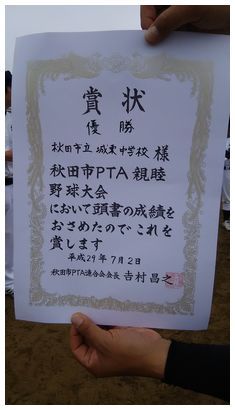 賞状
優勝
秋田市立 城東中学校 様
秋田市PTA親睦
野球大会
において頭書の成績を
おさめたのでこれを
賞します
平成29年7月2日
秋田市PTA連合会会長 吉村昌之